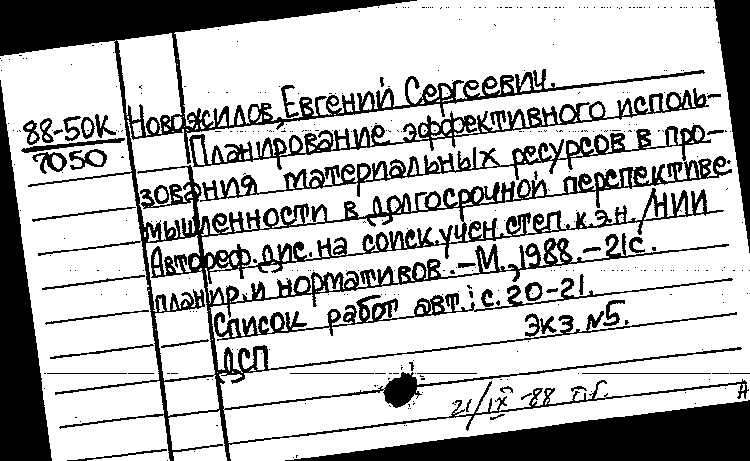 88-50К
7050
Новожилов, Евгений Сергеевич.
Планирование эффективного исполь-
зования материальных ресурсов в про-
мышленности в долгосрочной перспективе
Автореф. дис. на соиск. учен. степ. к.э.н. / НИИ
планир. и нормативов. – М., 1988. – 21с.
Список работ авт.: с. 20-21.
Экз. №5.
ДСП
21/IX -88 п.г.
А